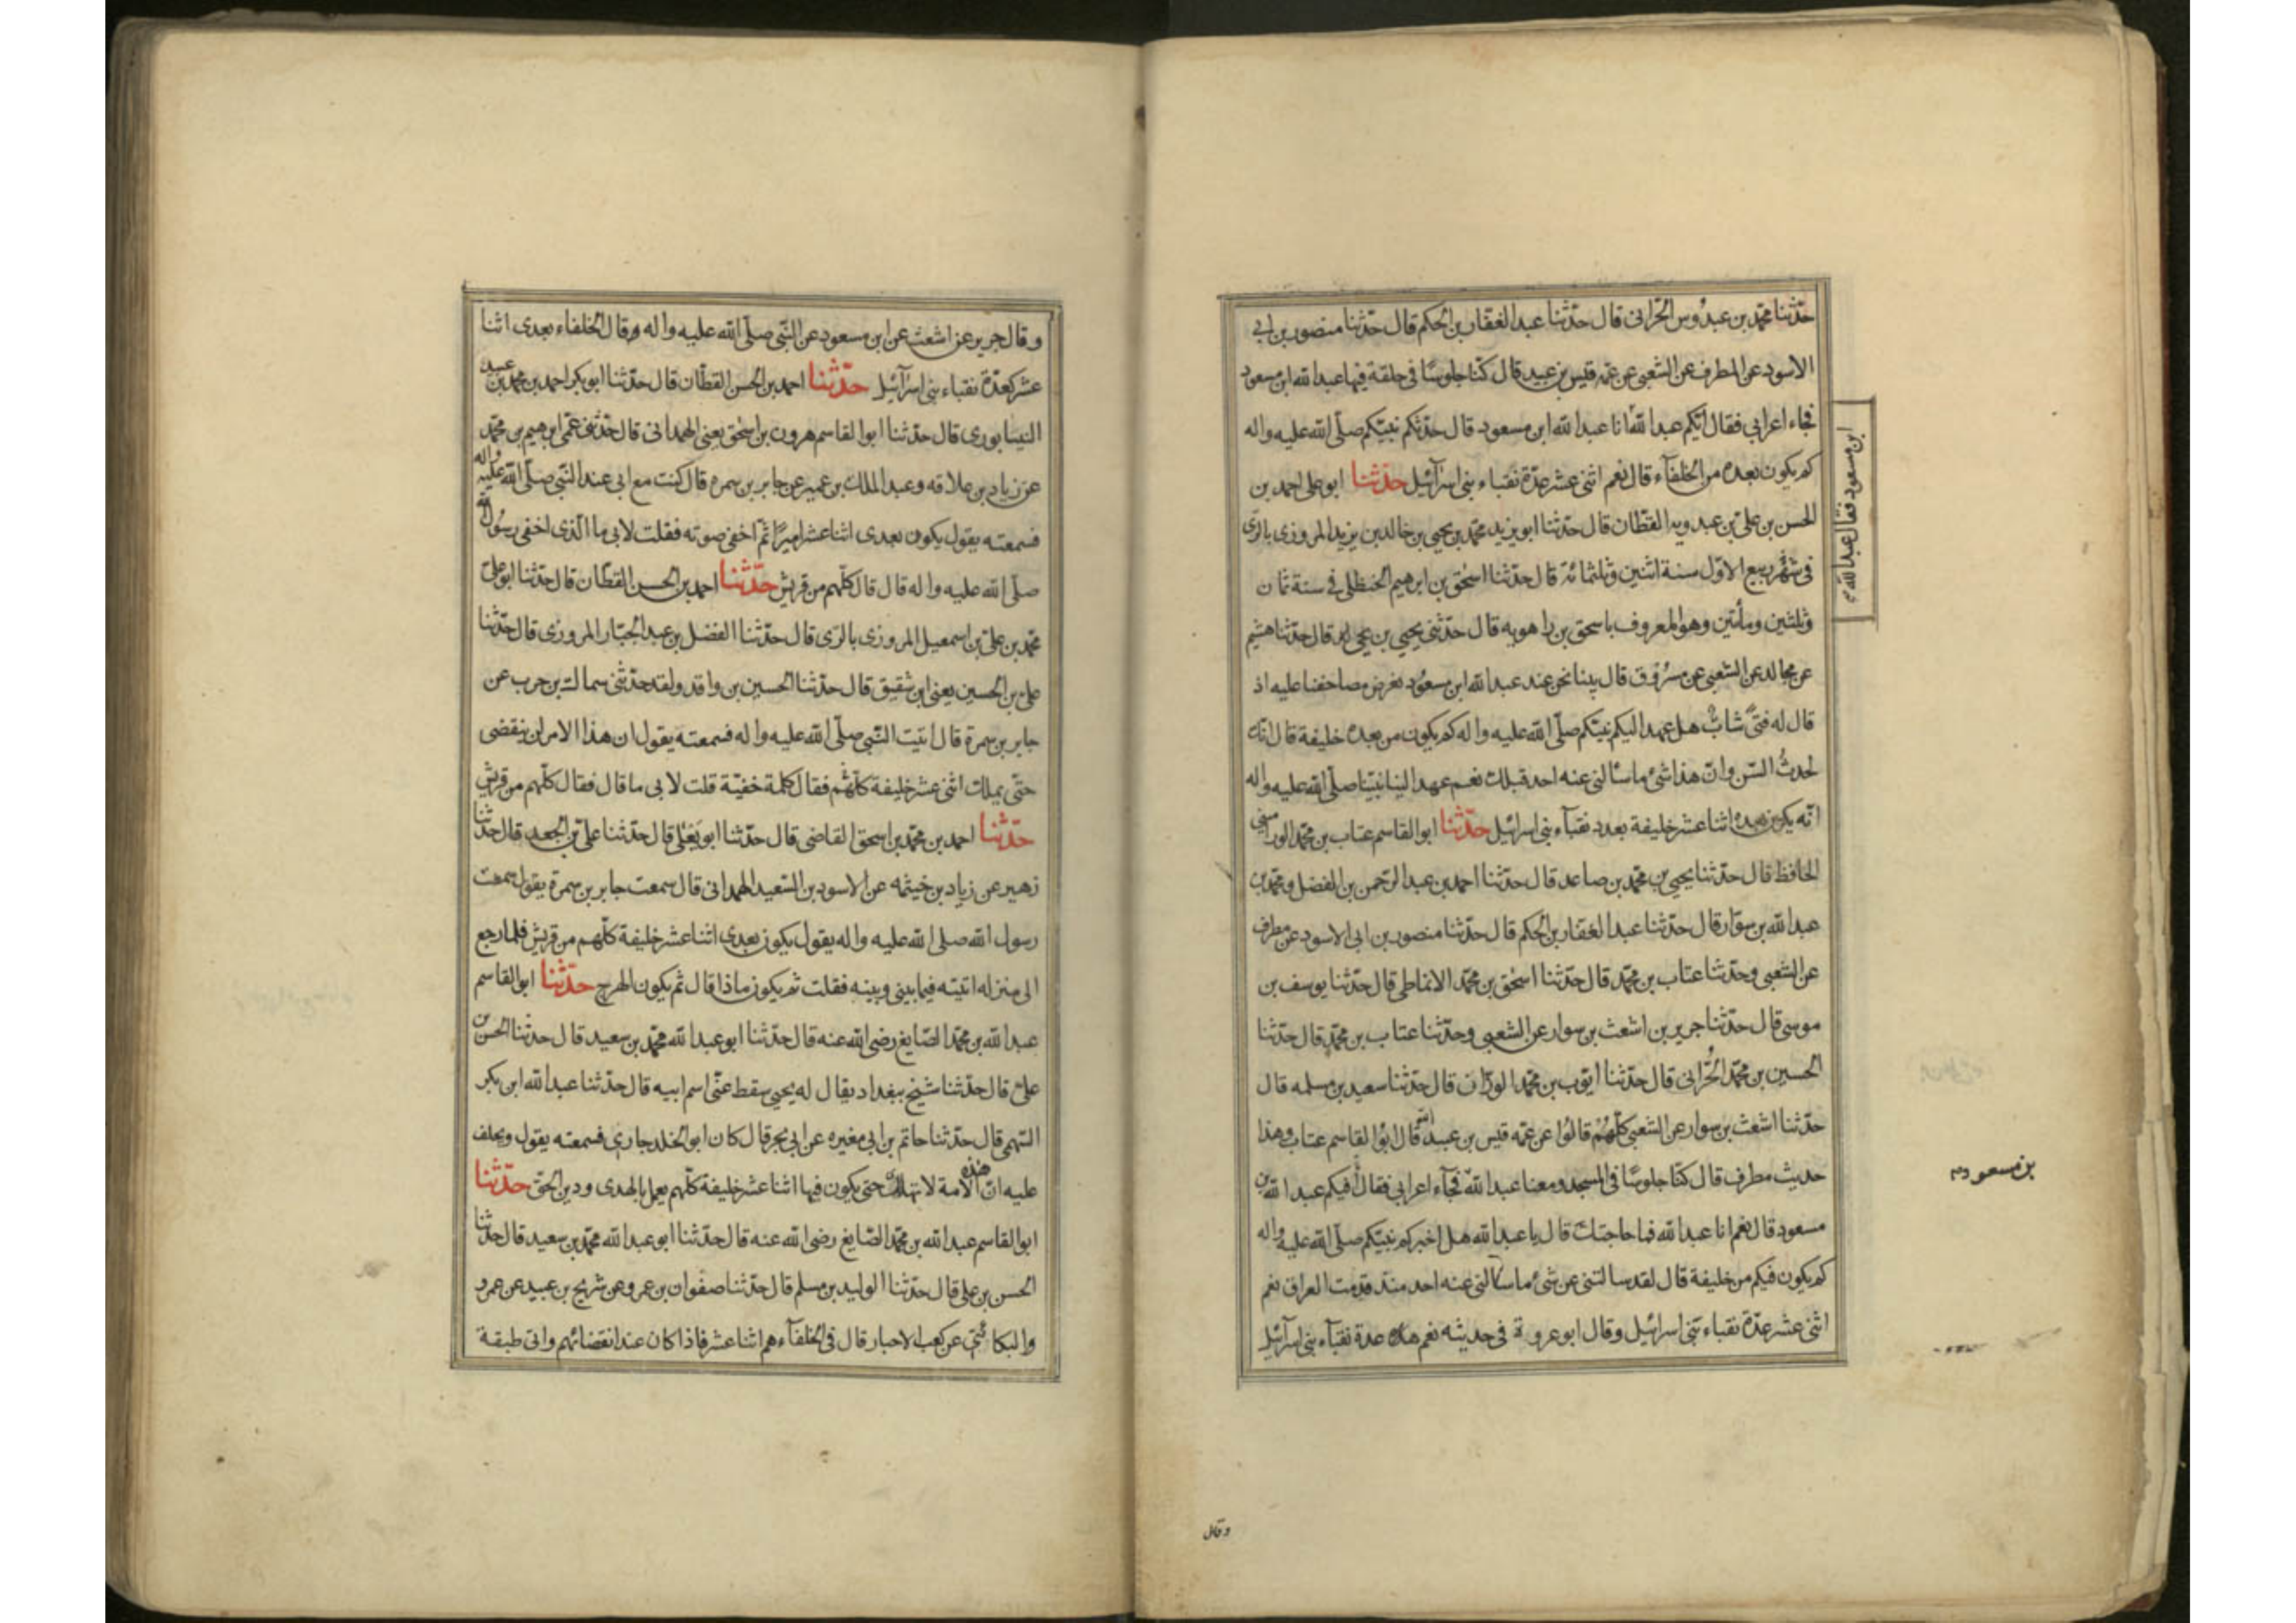 حدّثنا محمّد بن عبدوس الحرّانى قال حدّثنا عبد الغفّار بن الحكم قال حدّثنا منصور بن ابى
الاسود عن المطرف عن الشعبى عن عمّه قيس بن عبيد قال كنّا جلوسًا فى حلقة فيها عبد الله ابن مسعود
فجاء اعرابى فقال ايّكم عبد الله انا عبد الله ابن مسعود قال حدّثكم نبيّكم صلّى الله عليه واله
ابن مسعود فقال عبد الله
كم يكون بعده من الخلفآء قال نعم اثنى عشر عدّة نقباء بنى اسرآئيل حدّثنا ابو على احمد بن
الحسن بن علىّ بن عبدويه القطّان قال حدّثنا ابو يزيد محمّد بن يحيى بن خالد بن يزيد المروزى بالرّى
فى شهر ربيع الاوّل سنة اثنين وثلثمائة قال حدّثنا اسحق بن ابرهيم الحنظلى فى سنة ثمان
وثلثين ومأتين وهو المعروف باسحق بن راهويه قال حدّثنى يحيى بن يحيى قال حدّثنا هشيم
عن مجالد عن الشعبى عن مسروق قال بينا نحن عند عبد الله ابن مسعود نعرض مصاحفنا عليه اذ
قال له فتىً شابٌّ هل عهد اليكم نبيّكم صلّى الله عليه واله كم يكون من بعده خليفة قال انّك
لحدثُ السّن وانّ هذا شئ ماسألنى عنه احد قبلك نعم عهد الينا نبيّنا صلّى الله عليه واله
انّه يكون بعده اثنا عشر خليفة بعدد نقبآء بنى اسرائيل حدّثنا ابو القاسم عتاب بن محمّد الورامينى
الحافظ قال حدّثنا يحيى بن محمّد بن صاعد قال حدّثنا احمد بن عبد الرّحمن بن الفضل ومحمّد بن
عبد الله بن سوّار قال حدّثنا عبد الغفّار بن الحكم قال حدّثنا منصور بن ابى الاسود عن مطرف
عن الشعبى وحدّثنا عتاب بن محمّد قال حدّثنا اسحق بن محمّد الانماطى قال حدّثنا يوسف بن
موسى قال حدّثنا جرير بن اشعث بن سوار عن الشعبى وحدّثنا عتاب بن محمّد قال حدّثنا
الحسين بن محمّد الحُرّانى قال حدّثنا ايّوب بن محمّد الورّان قال حدّثنا سعيد بن مسلمه قال
حدّثنا اشعث بن سوار عن الشعبى كلّهُمْ قالُوا عن عمّه قيس بن عبد الله قال ابوُ القاسم عتاب وهذا
حديث مطرف قال كنّا جلوسًا فى المسجد ومعنا عبد الله فجآء اعرابى فقال أفيكم عبد الله بن
بن مسعود
مسعود قال نعم انا عبد الله فما حاجتك قال يا عبد الله هل اخبركم نبيّكم صلّى الله عليه واله
كم يكون فيكم من خليفة قال لقد سالتنى عن شئ ماسألنى عنه احد منذ قدمت العراق نعم
اثنى عشر عدّة نقباء بنى اسرائيل وقال ابو عروبة فى حديثه نعم هذه عدة نقبآء بنى اسرآئيل
وقال
وقال جرير عن اشعث عن ابن مسعود عن النّبى صلّى الله عليه واله وقال الخلفاء بعدى اثنا
عشر كعدّة نقباء بنى اسرآئيل حدّثنا احمد بن الحسن القطّان قال حدّثنا ابو بكر احمد بن محمد بن عبيد
النيسابورى قال حدّثنا ابو القاسم هرون بن اسحق يعنى الهمدانى قال حدّثنى عمّى ابرهيم بن محمّد
عن زياد بن علاقه وعبد الملك بن عمير عن جابر بن سمره قال كنت مع ابى عند النّبى صلّى الله عليه واله
فسمعته يقول يكون بعدى اثنا عشر اميرًا ثمّ اخفى صوته فقلت لابى ما الّذى اخفى رسُول الله
صلّى الله عليه واله قال قال كلّهم من قريش حدّثنا احمد بن الحسن القطّان قال حدّثنا ابو علىّ
محمّد بن علىّ بن اسمعيل المروزى بالرّى قال حدّثنا الفضل بن عبد الجبّار المروزى قال حدّثنا
على بن الحسين يعنى ابن شقيق قال حدّثنا الحسين بن واقد ولقد حدّثنى سماك بن حرب عن
جابر بن سمرة قال اتيت النّبى صلّى الله عليه واله فسمعته يقول ان هذا الامر لن ينقضى
حتّى يملك اثنى عشر خليفة كلّهُم فقال كلمة خفيّة قلت لابى ما قال فقال كلّهم من قريش
حدّثنا احمد بن محمّد بن اسحق القاضى قال حدّثنا ابو يَعْلى قال حدّثنا علىّ بن الجعد قال حدّثنا
زهير عن زياد بن خيثمه عن الاسود بن السّعيد الهمدانى قال سمعت جابر بن سمرة يقول سمعت
رسول الله صلى الله عليه واله يقول يكون بعدى اثنا عشر خليفة كلّهم من قريش فلمّا رجع
الى منزله اتيته فيما بينى وبينه فقلت ثم يكون ماذا قال ثمّ يكون الهرج حدّثنا ابو القاسم
عبد الله بن محمّد الصّايغ رضى الله عنه قال حدّثنا ابو عبد الله محمّد بن سعيد قال حدّثنا الحسن بن
علىّ قال حدّثنا شيخ ببغداد يقال له يحيى سقط عنّى اسم ابيه قال حدّثنا عبد الله ابن بكر
السّهمى قال حدّثنا حاتم بن ابى مغيره عن ابى بحر قال كان ابو الخلد جارى فسمعته يقول ويحلف
عليه انّ هذه الامة لا تهلك حتى يكون فيها اثنا عشر خليفة كلّهم يعمل بالهدى ودين الحقّ حدّثنا
ابو القاسم عبد الله بن محمّد الصّايغ رضى الله عنه قال حدّثنا ابو عبد الله محمّد بن سعيد قال حدّثنا
الحسن بن على قال حدّثنا الوليد بن مسلم قال حدّثنا صفوان بن عمرو عن شريح بن عبيد عن عمرو
والبكائى عن كعب الاحبار قال فى الخلفآء هم اثنا عشر فاذا كان عند انقضائهم واتى طبقة